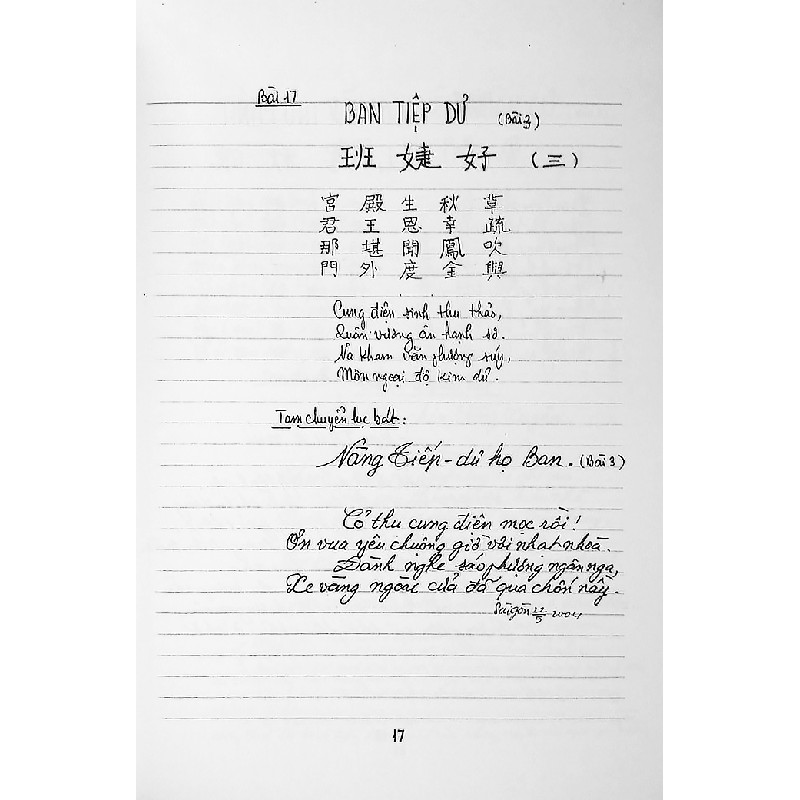 Bài 17
BAN TIỆP DƯ (Bài 3)
班 婕 妤 (三)
宮 殿 生 秋 草
君 王 恩 幸 疏
那 堪 聞 鳳 吹
門 外 度 金 輿
Cung điện sinh thu thảo,
Quân vương ân hạnh sơ.
Na kham văn phượng xúy,
Môn ngoại độ kim dư.
Tam chuyển lục bát:
Nàng Tiếp-dư họ Ban. (Bài 3)
Cỏ thu cung điện mọc rồi!
Ơn vua yêu chuộng giờ vời nhạt nhoà.
Đành nghe sáo phượng ngân nga,
Xe vàng ngoài cửa đã qua chốn nầy.
Sàigòn
17